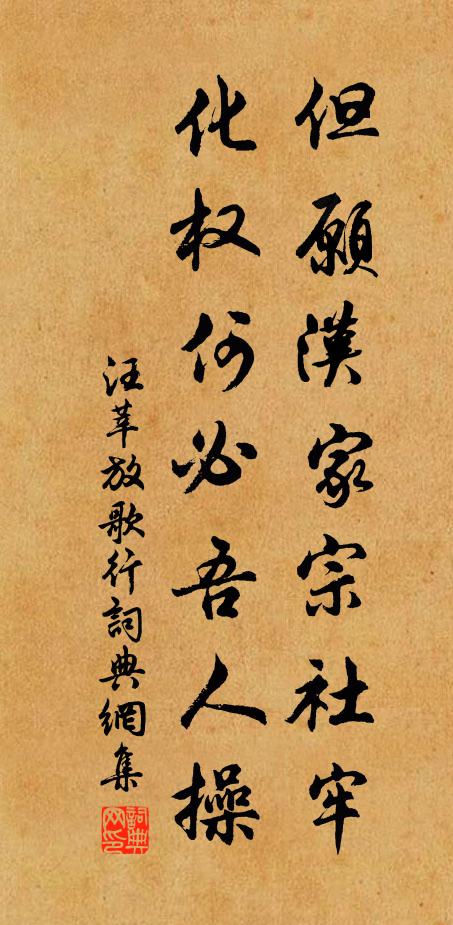 但願漢家宗社牢
化权何必吾人操
汪莘放歌行詞典網集
詞典网印